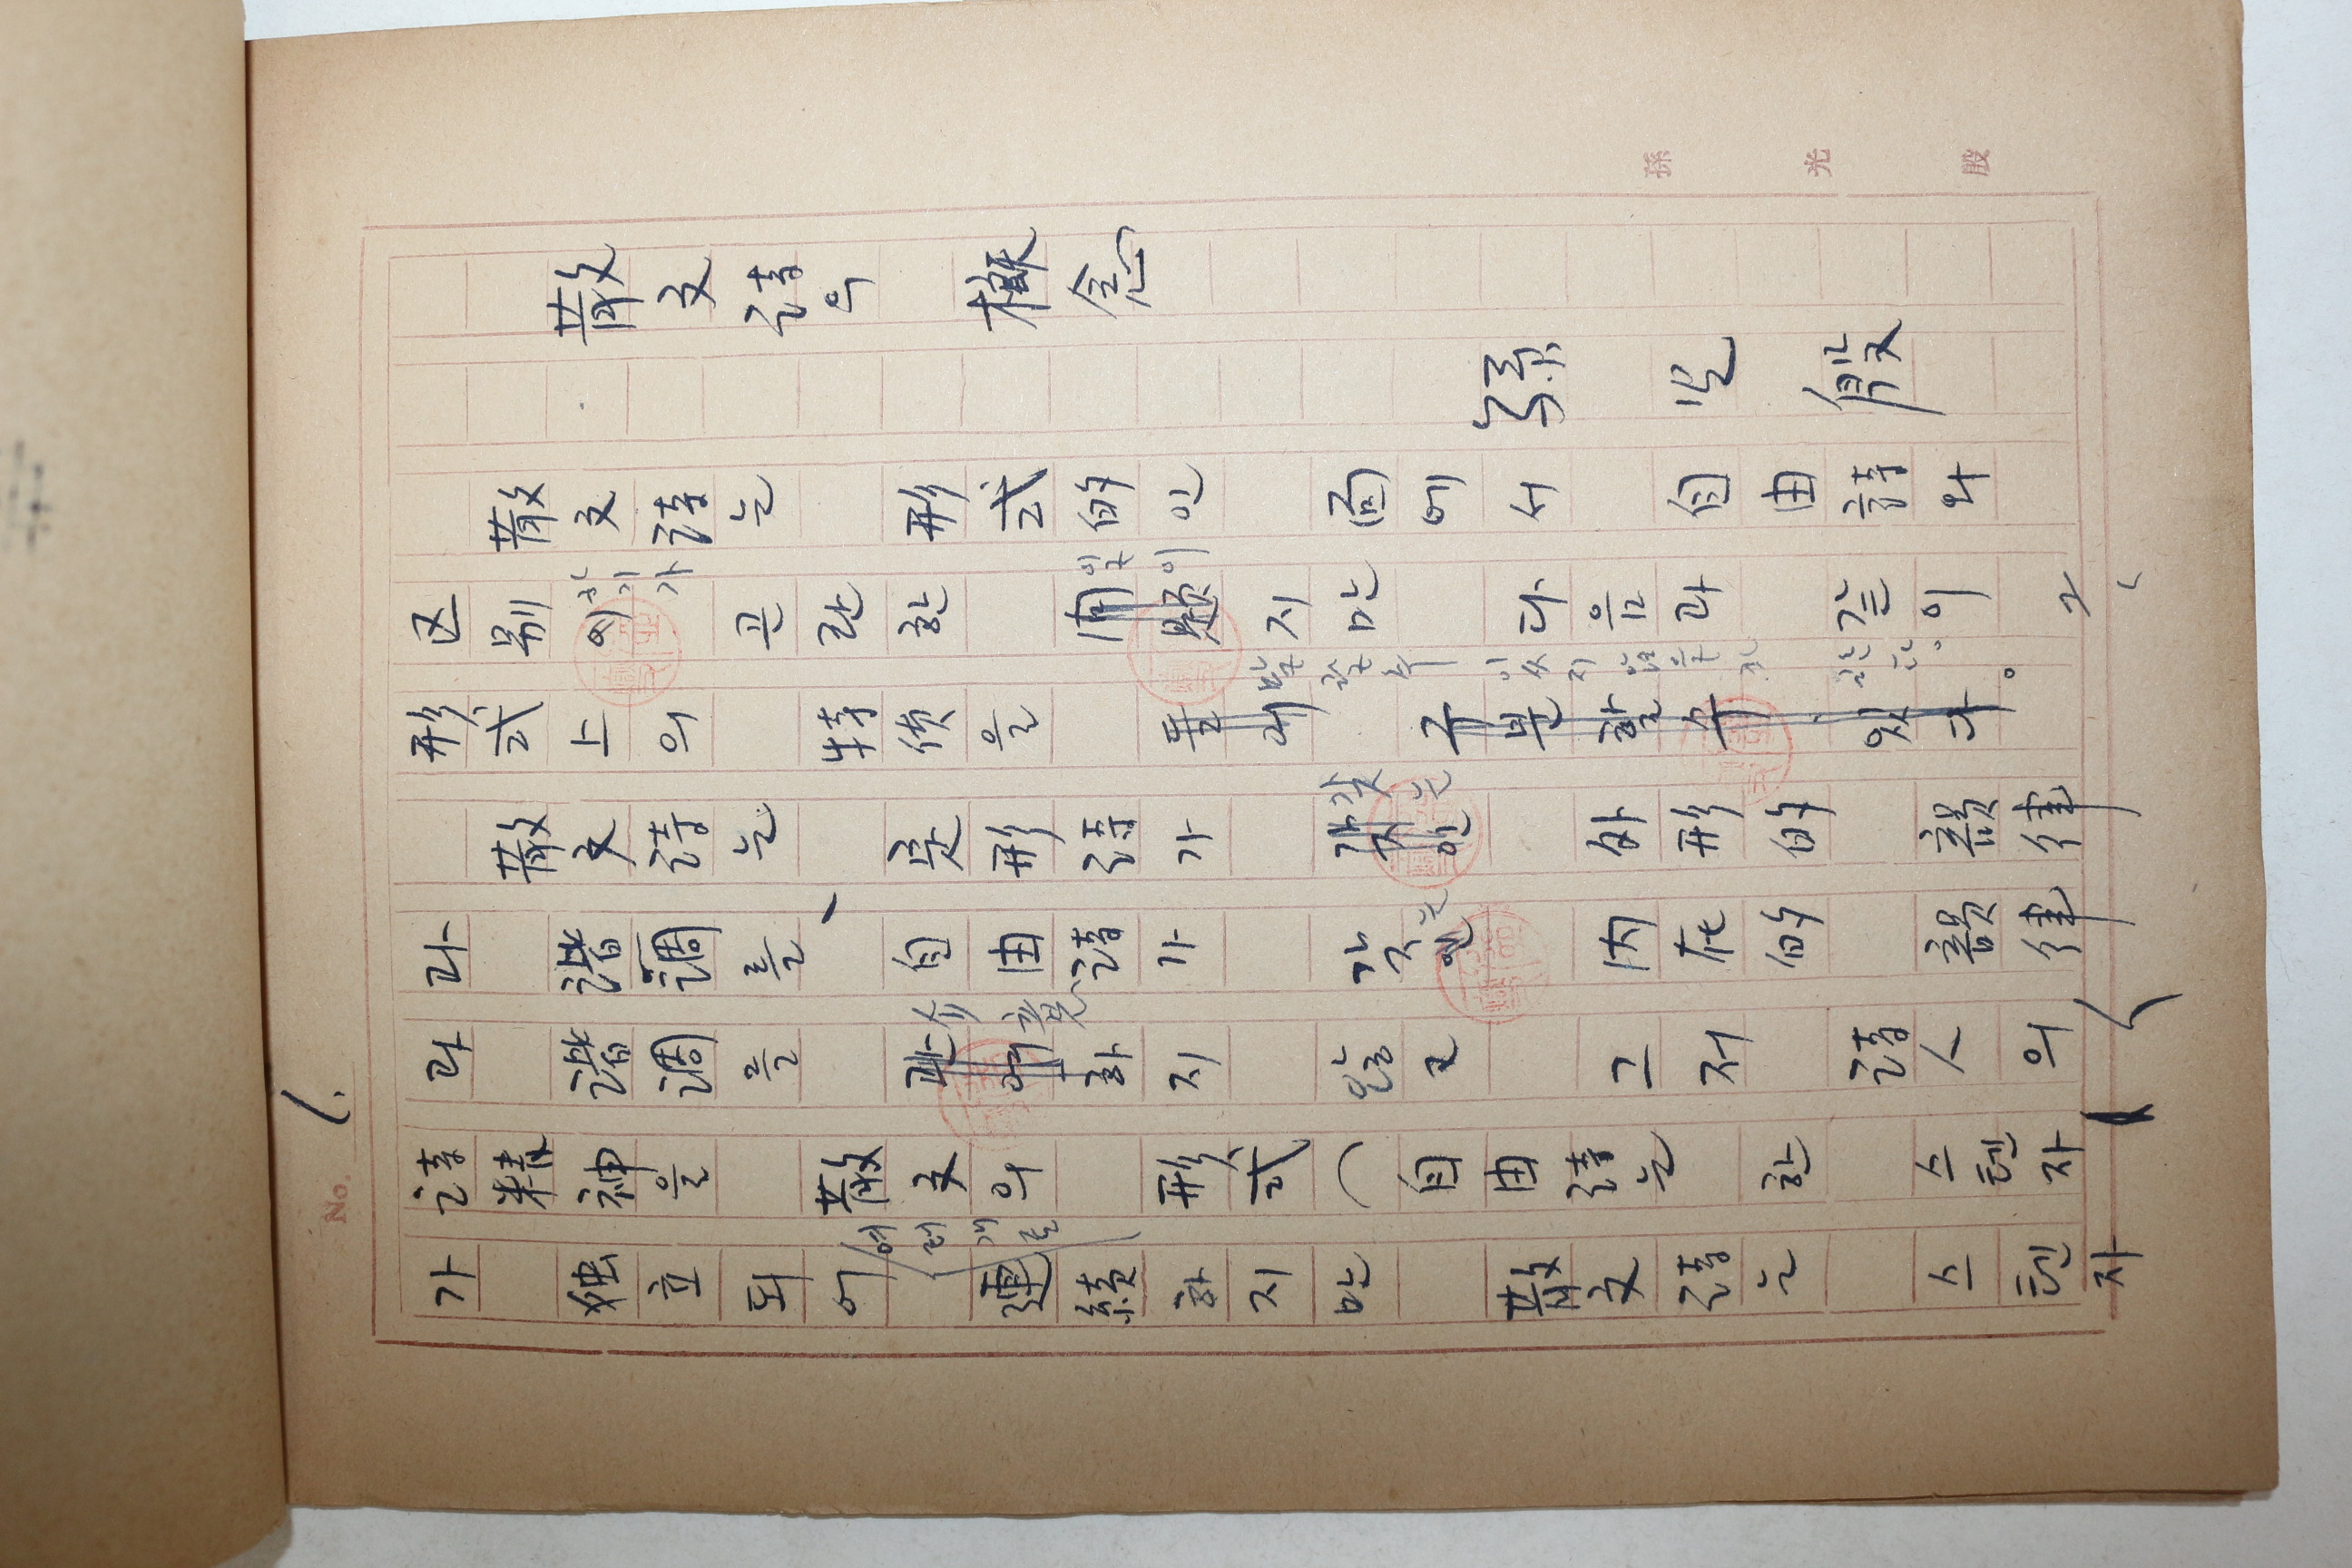 No. 1.
散文詩의 概念
孫光殷
散文詩는 形式的인 面에서 自由詩와
区別이 곤란한 問題지만 다음과 같이 그
하기가
일이
形式上의 을 구분할 수 있다。
말할 수 있지 않을까 한다。
散文詩는 定形詩가 갖인 外形的 韻律
갖는
과 諧調를、自由詩가 갖인 内在的 韻律
는
과 諧調를 관여하지 않고 그저 詩人의
介意
詩精神을 散文의 形式(自由詩는 한 스텐자
가 独立되어 連続하지만 散文詩는 스텐자
여러개로
孫光殷